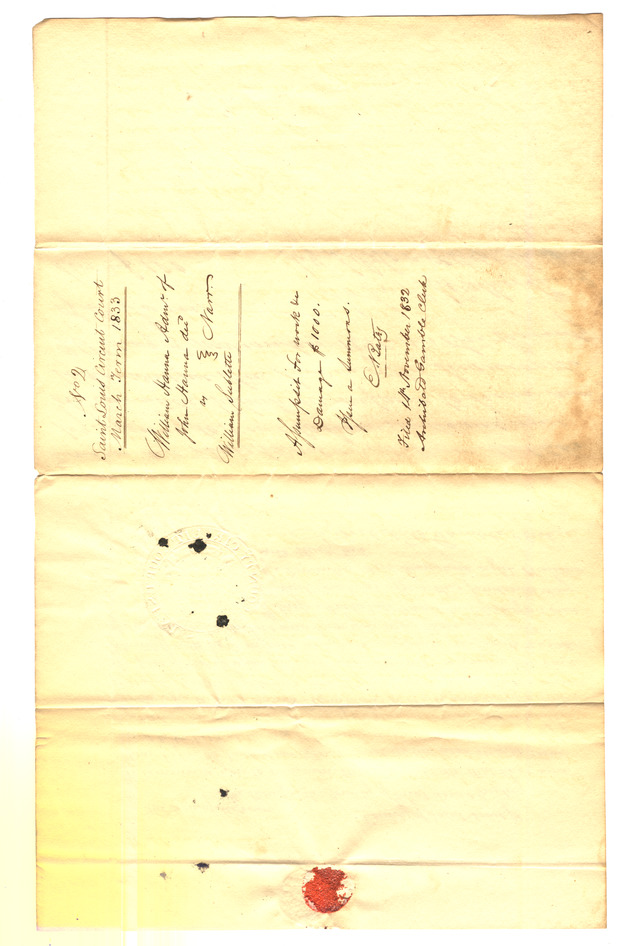 No 2
Saint Louis Circuit Court
March Term 1833
William Hanna Admr of
John Hanna decd
vs } Narr.
William Sublette
Assumpsit for work &c
Damage $1000.
Open a summons.
E Bates
Filed 1st November 1832
Archibald Gamble Clerk